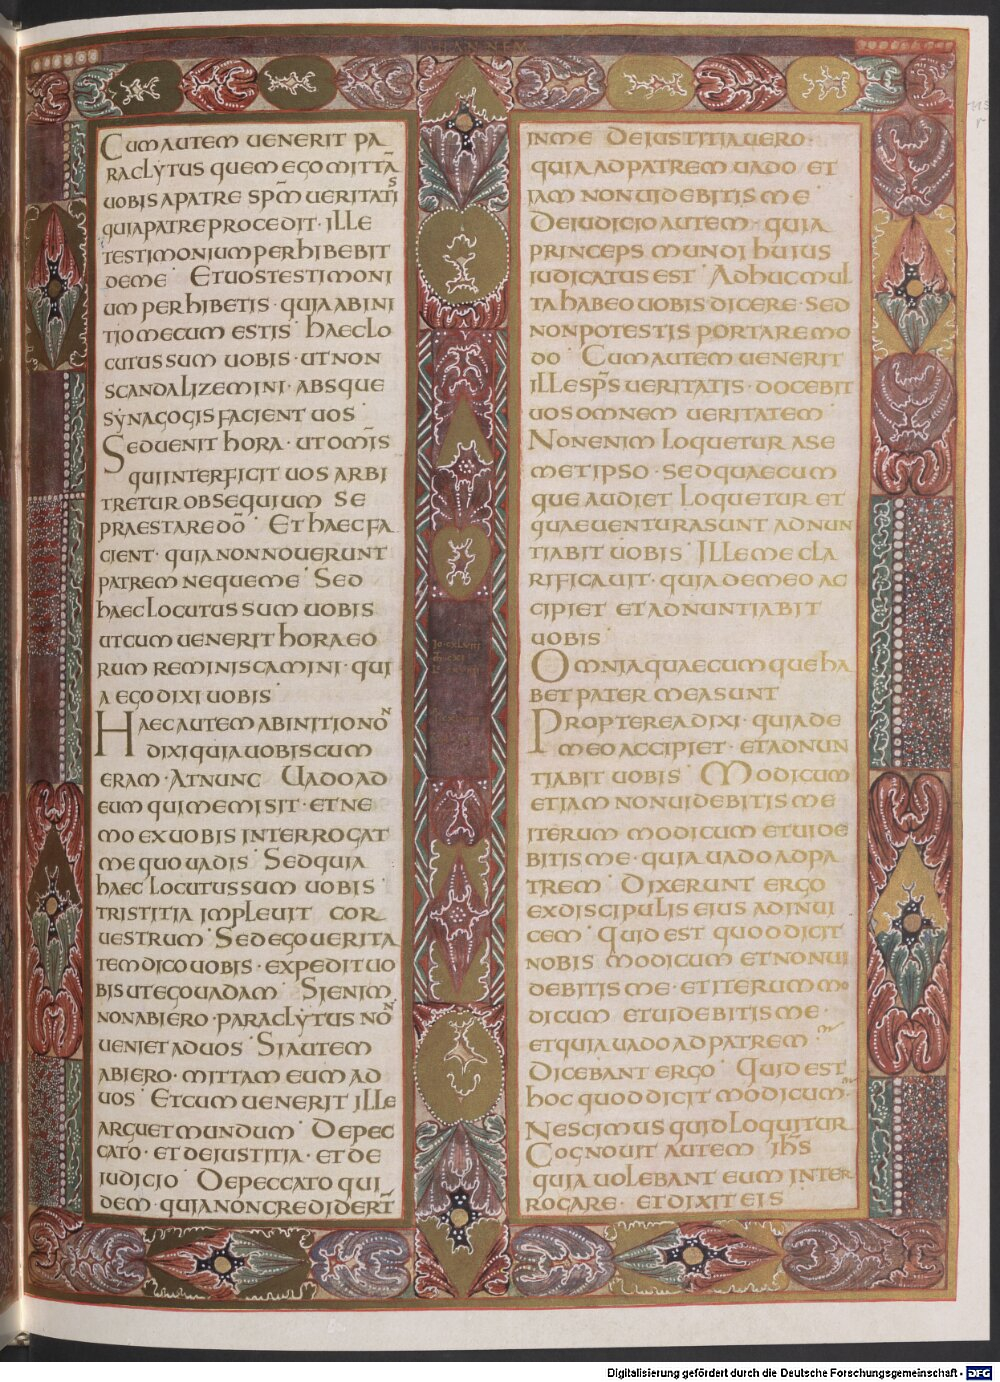 IOHANNEM
CUM AUTEM UENERIT PA
RACLYTUS QUEM EGO MITTĀ
UOBIS A PATRE SPM̄ UERITATIS
QUI A PATRE PROCEDIT · ILLE
TESTIMONIUM PERHIBEBIT
DE ME · ET UOS TESTIMONI
UM PERHIBETIS · QUIA AB INI
TIO MECUM ESTIS · HAEC LO
CUTUS SUM UOBIS · UT NON
SCANDALIZEMINI · ABSQUE
SYNAGOGIS FACIENT UOS ·
SED UENIT HORA · UT OMIS̄
QUI INTERFICIT UOS ARBI
TRETUR OBSEQUIUM SE
PRAESTARE DŌ · ET HAEC FA
CIENT · QUIA NON NOUERUNT
PATREM NEQUE ME · SED
HAEC LOCUTUS SUM UOBIS
UT CUM UENERIT HORA EO
RUM REMINISCAMINI · QUI
A EGO DIXI UOBIS ·
HAEC AUTEM AB INITIO NON
DIXI QUIA UOBISCUM
ERAM · AT NUNC UADO AD
EUM QUI ME MISIT · ET NE
MO EX UOBIS INTERROGAT
ME QUO UADIS · SED QUIA
HAEC LOCUTUS SUM UOBIS ·
TRISTITIA IMPLEUIT COR
UESTRUM · SED EGO UERITA
TEM DICO UOBIS · EXPEDIT UO
BIS UT EGO UADAM · SI ENIM
NON ABIERO · PARACLYTUS NON
UENIET AD UOS · SI AUTEM
ABIERO · MITTAM EUM AD
UOS · ET CUM UENERIT ILLE
ARGUET MUNDUM · DE PEC
CATO · ET DE IUSTITIA · ET DE
IUDICIO · DE PECCATO QUI
DEM · QUIA NON CREDIDERT̄
IN ME · DE IUSTITIA UERO ·
QUIA AD PATREM UADO · ET
IAM NON UIDEBITIS ME ·
DE IUDICIO AUTEM · QUIA
PRINCEPS MUNDI HUIUS
IUDICATUS EST · ADHUC MUL
TA HABEO UOBIS DICERE · SED
NON POTESTIS PORTARE MO
DO · CUM AUTEM UENERIT
ILLE SPS̄ UERITATIS · DOCEBIT
UOS OMNEM UERITATEM ·
NON ENIM LOQUETUR A SE
METIPSO · SED QUAECUM
QUE AUDIET LOQUETUR ET
QUAE UENTURA SUNT ADNUN
TIABIT UOBIS · ILLE ME CLA
RIFICAUIT · QUIA DE MEO AC
CIPIET ET ADNUNTIABIT
UOBIS ·
OMNIA QUAECUMQUE HA
BET PATER MEA SUNT
PROPTEREA DIXI · QUIA DE
MEO ACCIPIET · ET ADNUN
TIABIT UOBIS · MODICUM
ET IAM NON UIDEBITIS ME
ITERUM MODICUM ET UIDE
BITIS ME · QUIA UADO AD PA
TREM · DIXERUNT ERGO
EX DISCIPULIS EIUS AD INUI
CEM · QUID EST QUOD DICIT
NOBIS MODICUM ET NON UI
DEBITIS ME · ET ITERUM MO
DICUM ET UIDEBITIS ME ·
ET QUIA UADO AD PATREM ·
DICEBANT ERGO · QUID EST
HOC QUOD DICIT MODICUM ·
NESCIMUS QUID LOQUITUR
COGNOUIT AUTEM IHS̄
QUIA UOLEBANT EUM INTER
ROGARE · ET DIXIT EIS
Digitalisierung gefördert durch die Deutsche Forschungsgemeinschaft - DFG